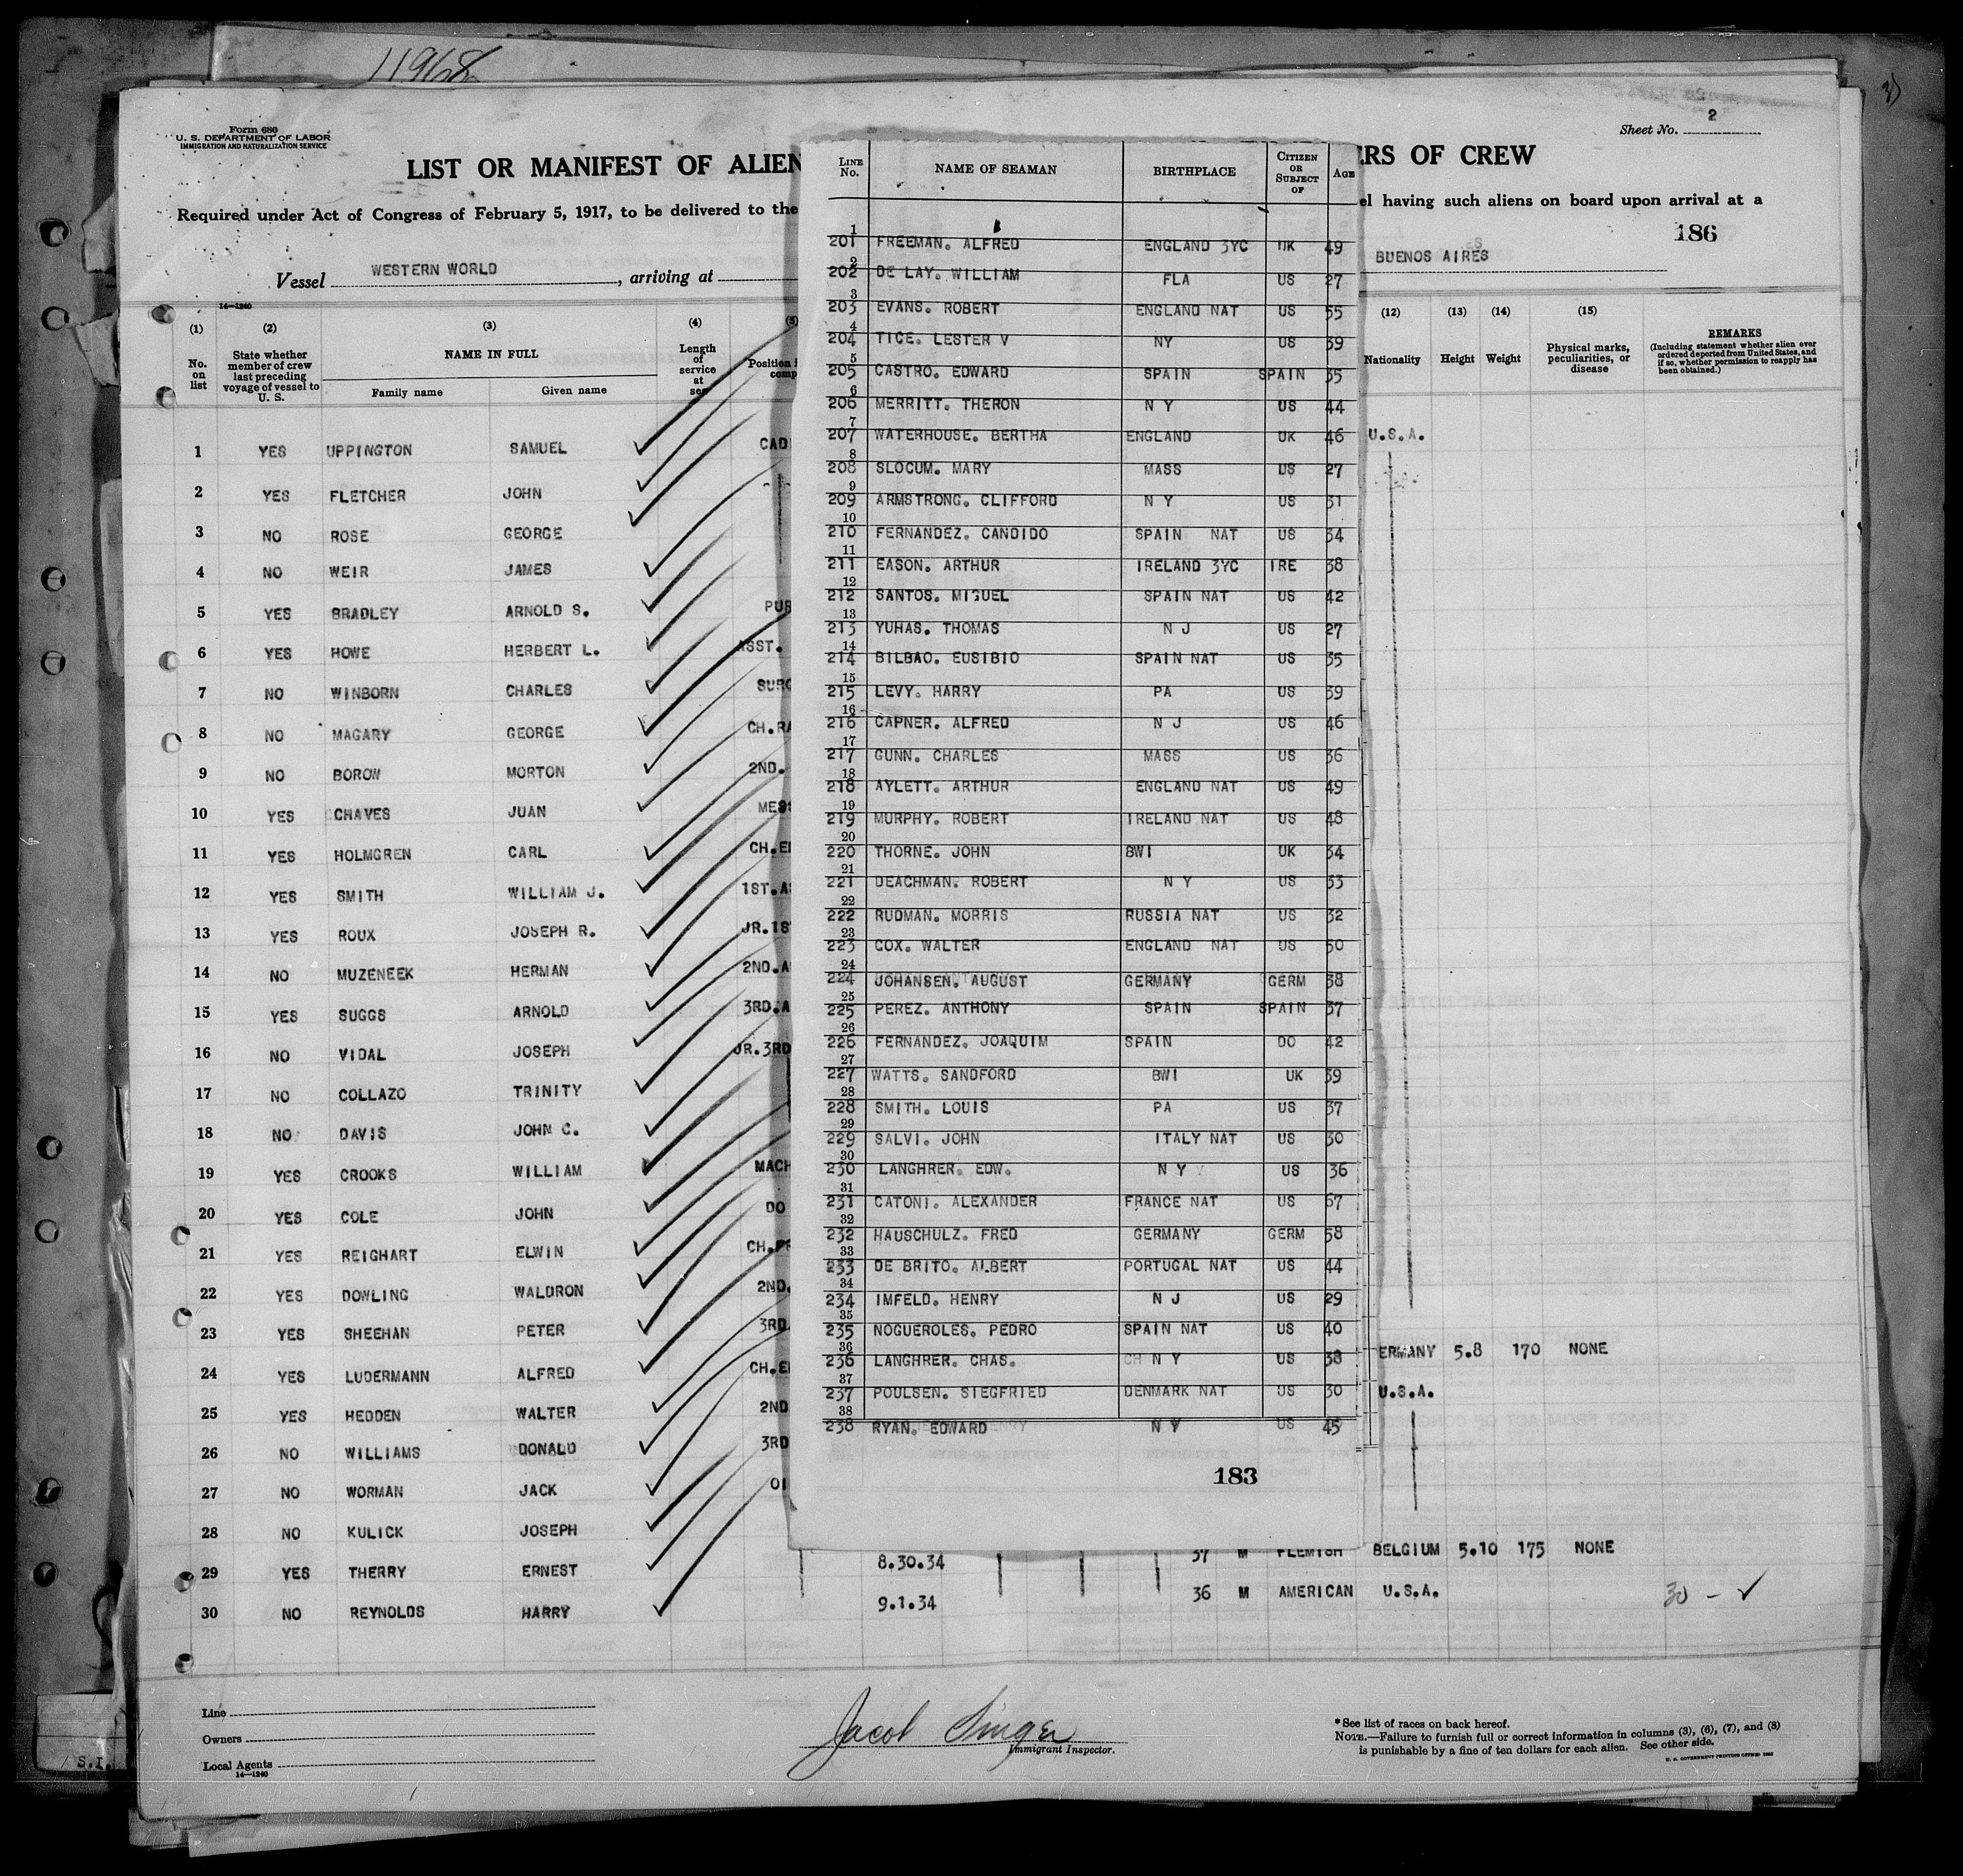 11968
Form 680
U. S. DEPARTMENT OF LABOR
IMMIGRATION AND NATURALIZATION SERVICE
Sheet No. 2
LIST OR MANIFEST OF ALIEN
ERS OF CREW
Required under Act of Congress of February 5, 1917, to be delivered to the
el having such aliens on board upon arrival at a
186
Vessel WESTERN WORLD, arriving at
BUENOS AIRES
14—1240
(1) (2) (3) (4) (5) (12) (13) (14) (15)
No. on list
State whether member of crew last preceding voyage of vessel to U. S.
NAME IN FULL
Family name Given name
Length of service at sea
Position
comp
Nationality Height Weight
Physical marks, peculiarities, or disease
REMARKS
(Including statement whether alien ever ordered deported from United States, and if so, whether permission to reapply has been obtained.)
1 YES UPPINGTON SAMUEL CAD U.S.A.
2 YES FLETCHER JOHN
3 NO ROSE GEORGE
4 NO WEIR JAMES
5 YES BRADLEY ARNOLD S. PUR
6 YES HOWE HERBERT L. ASST.
7 NO WINBORN CHARLES SURG
8 NO MAGARY GEORGE CH.RA
9 NO BOROW MORTON 2ND.
10 YES CHAVES JUAN MESS
11 YES HOLMGREN CARL CH.E
12 YES SMITH WILLIAM J. 1ST.A
13 YES ROUX JOSEPH R. JR.1S
14 NO MUZENEEK HERMAN 2ND.A
15 YES SUGGS ARNOLD 3RD.A
16 NO VIDAL JOSEPH JR.3RD
17 NO COLLAZO TRINITY
18 NO DAVIS JOHN C.
19 YES CROOKS WILLIAM MACH
20 YES COLE JOHN DO
21 YES REIGHART ELWIN CH.
22 YES DOWLING WALDRON 2ND.
23 YES SHEEHAN PETER 3RD
24 YES LUDERMANN ALFRED CH.E ERMANY 5.8 170 NONE
25 YES HEDDEN WALTER 2ND U.S.A.
26 NO WILLIAMS DONALD 3RD
27 NO WORMAN JACK OI
28 NO KULICK JOSEPH
29 YES THERRY ERNEST 8.30.34 37 M FLEMISH BELGIUM 5.10 175 NONE
30 NO REYNOLDS HARRY 9.1.34 36 M AMERICAN U.S.A. 30 - ✓
LINE No. NAME OF SEAMAN BIRTHPLACE CITIZEN OR SUBJECT OF AGE
1
201 FREEMAN. ALFRED ENGLAND 3YC UK 49
2
202 DE LAY. WILLIAM FLA US 27
3
203 EVANS. ROBERT ENGLAND NAT US 55
4
204 TICE. LESTER V NY US 39
5
205 CASTRO. EDWARD SPAIN SPAIN 35
6
206 MERRITT. THERON N Y US 44
7
207 WATERHOUSE. BERTHA ENGLAND UK 46
8
208 SLOCUM. MARY MASS US 27
9
209 ARMSTRONG. CLIFFORD N Y US 31
10
210 FERNANDEZ. CANDIDO SPAIN NAT US 34
11
211 EASON. ARTHUR IRELAND 3YC IRE 38
12
212 SANTOS. MIGUEL SPAIN NAT US 42
13
213 YUHAS. THOMAS N J US 27
14
214 BILBAO. EUSIBIO SPAIN NAT US 35
15
215 LEVY. HARRY PA US 39
16
216 CAPNER. ALFRED N J US 46
17
217 GUNN. CHARLES MASS US 36
18
218 AYLETT. ARTHUR ENGLAND NAT US 49
19
219 MURPHY. ROBERT IRELAND NAT US 48
20
220 THORNE. JOHN BWI UK 34
21
221 DEACHMAN. ROBERT N Y US 33
22
222 RUDMAN. MORRIS RUSSIA NAT US 32
23
223 COX. WALTER ENGLAND NAT US 50
24
224 JOHANSEN. AUGUST GERMANY GERM 38
25
225 PEREZ. ANTHONY SPAIN SPAIN 37
26
226 FERNANDEZ. JOAQUIM SPAIN DO 42
27
227 WATTS. SANDFORD BWI UK 39
28
228 SMITH. LOUIS PA US 37
29
229 SALVI. JOHN ITALY NAT US 30
30
230 LANGHRER. EDW. N Y US 36
31
231 CATONI. ALEXANDER FRANCE NAT US 67
32
232 HAUSCHULZ. FRED GERMANY GERM 58
33
233 DE BRITO. ALBERT PORTUGAL NAT US 44
34
234 IMFELD. HENRY N J US 29
35
235 NOGUEROLES. PEDRO SPAIN NAT US 40
36
236 LANGHRER. CHAS. N Y US 38
37
237 POULSEN. SIEGFRIED DENMARK NAT US 30
38
238 RYAN. EDWARD N Y US 45
183
Line
Owners
Local Agents
14—1240
Jacob Singer
Immigrant Inspector.
*See list of races on back hereof.
NOTE.—Failure to furnish full or correct information in columns (3), (6), (7), and (8)
is punishable by a fine of ten dollars for each alien. See other side.
S.I.